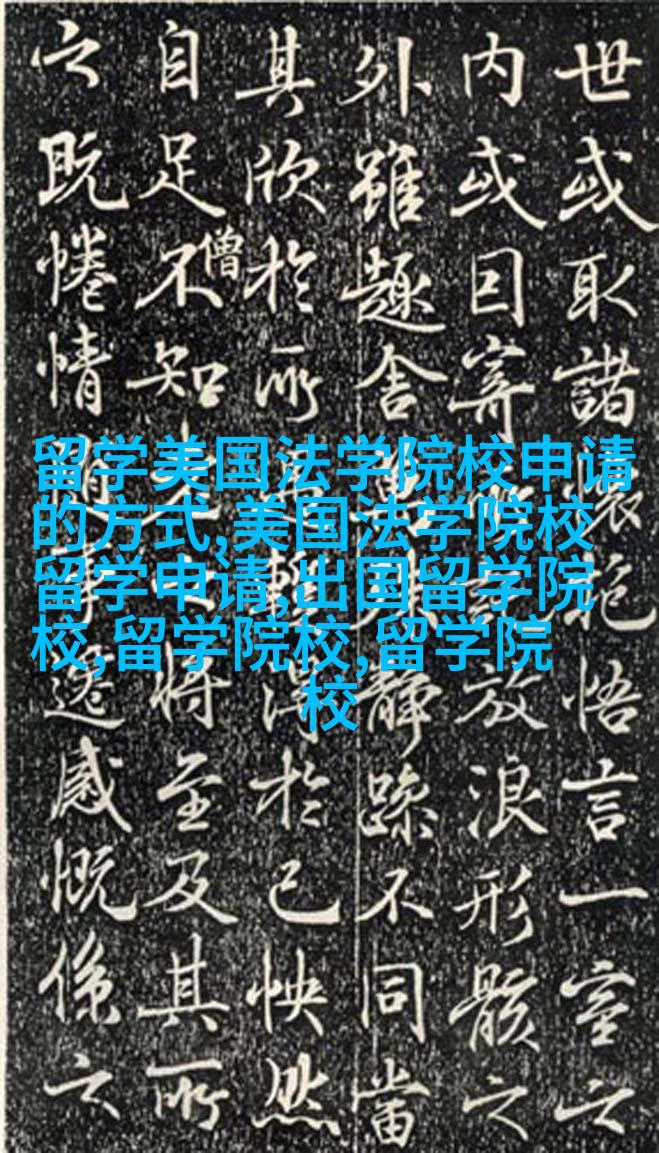 留学美国法学院校申请
的方式,美国法学院校
留学申请,出国留学院
校,留学院校,留学院
校
世或取諸懷抱悟言一室之
内或因寄放浪形骸之
外雖趣舍靜躁不同當
其欣於所於己怏然
自足不知將至及其所
僧
之既惓情遷感慨係之